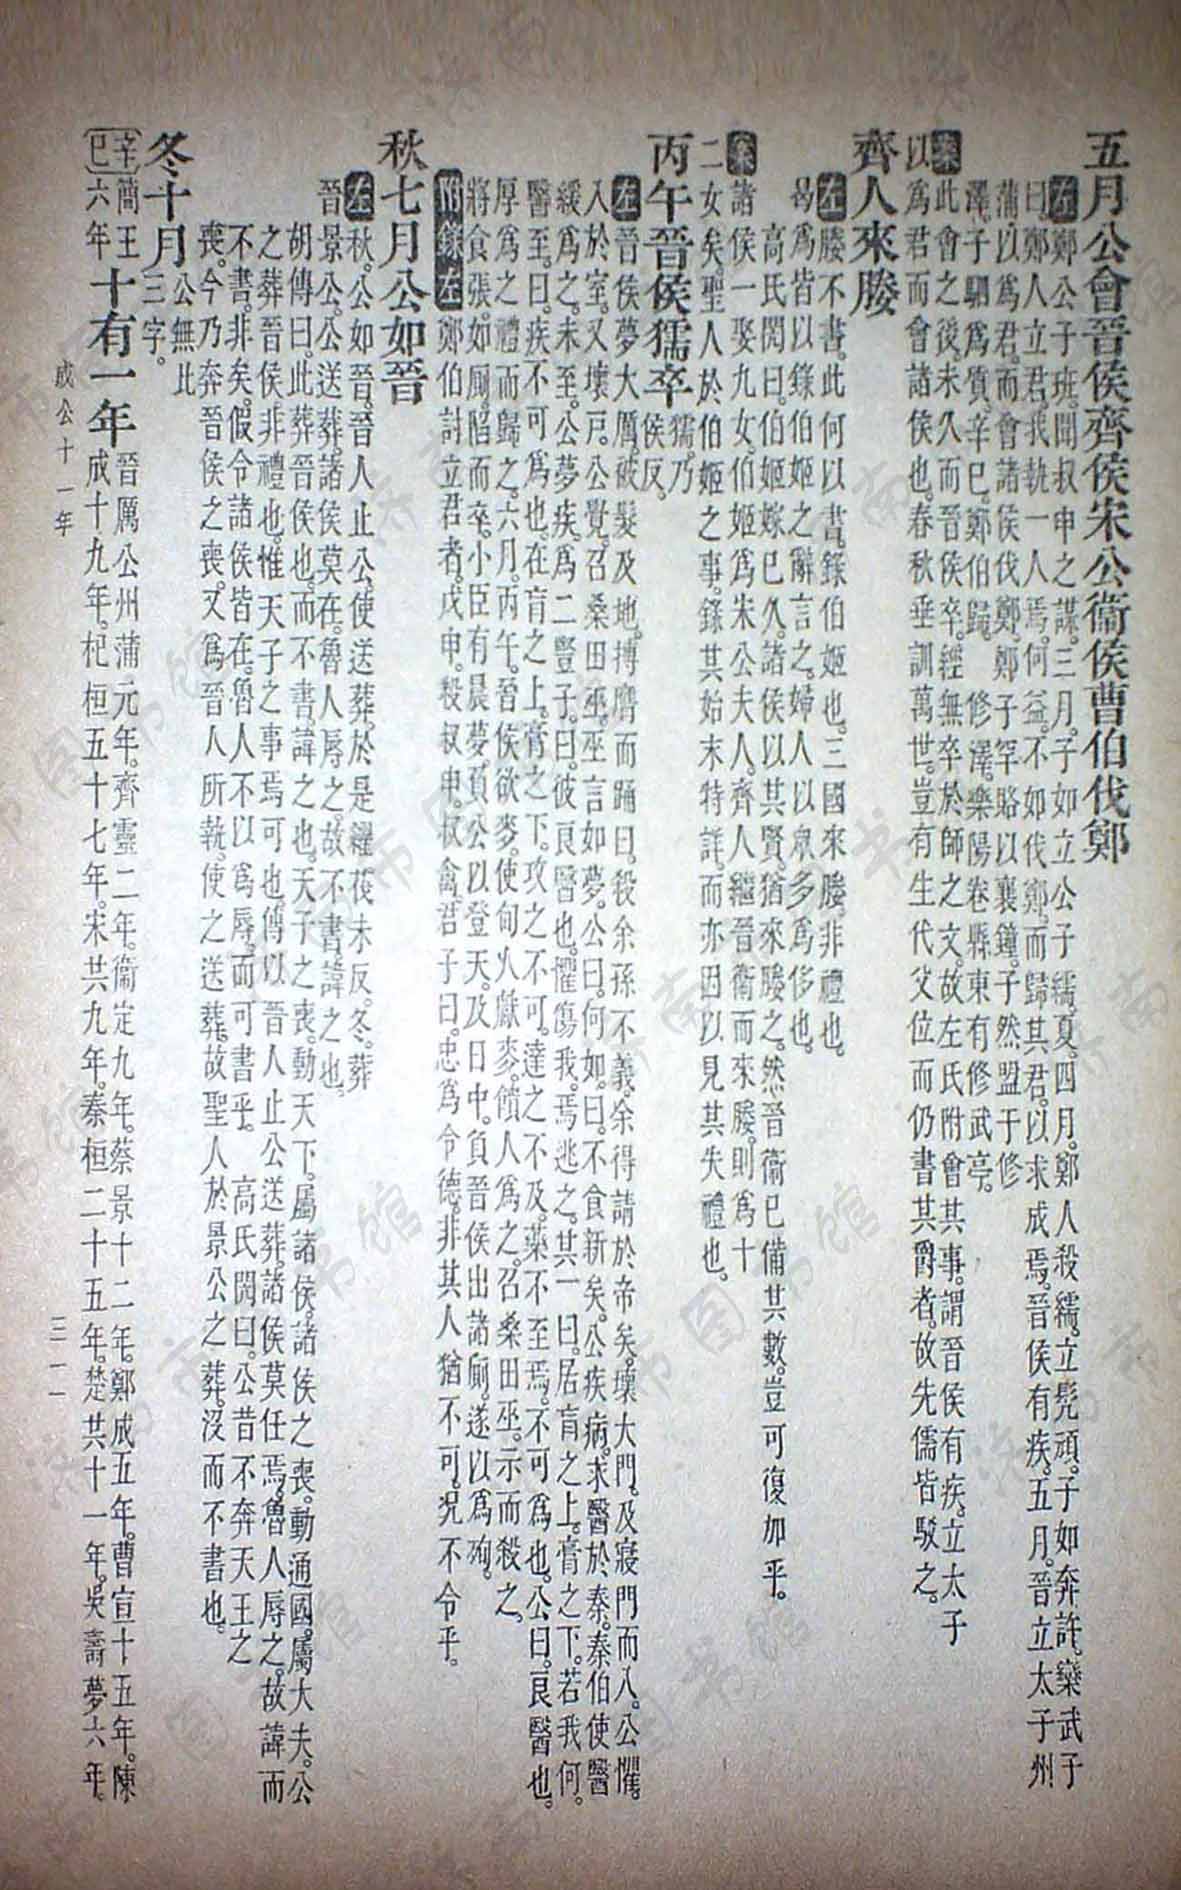 五月公會晉侯齊侯宋公衞侯曹伯伐鄭
左鄭公子班聞叔申之謀三月子如立公子繻夏四月鄭人殺繻立髡頑子如奔許欒武子
曰鄭人立君我執一人焉何益不如伐鄭而歸其君以求成焉晉侯有疾五月晉立太子州
蒲以爲君而會諸侯伐鄭鄭子罕賂以襄鐘子然盟于修
澤子駟爲質辛巳鄭伯歸 修澤滎陽卷縣東有修武亭
案此會之後未久而晉侯卒經無卒於師之文故左氏附會其事謂晉侯有疾立太子
以爲君而會諸侯也春秋垂訓萬世豈有生代父位而仍書其爵者故先儒皆駁之
齊人來媵
左媵不書此何以書錄伯姬也三國來媵非禮也
曷爲皆以錄伯姬之辭言之婦人以眾多爲侈也
高氏閌曰伯姬嫁已久諸侯以其賢猶來媵之然晉衞已備其數豈可復加乎
案諸侯一娶九女伯姬爲宋公夫人齊人繼晉衞而來媵則爲十
二女矣聖人於伯姬之事錄其始末特詳而亦因以見其失禮也
丙午晉侯獳卒 獳乃侯反
左晉侯夢大厲被髮及地搏膺而踊曰殺余孫不義余得請於帝矣壞大門及寢門而入公懼
入於室又壞戶公覺召桑田巫巫言如夢公曰何如曰不食新矣公疾病求醫於秦秦伯使醫
緩爲之未至公夢疾爲二豎子曰彼良醫也懼傷我焉逃之其一曰居肓之上膏之下若我何
醫至曰疾不可爲也在肓之上膏之下攻之不可達之不及藥不至焉不可爲也公曰良醫也
厚爲之禮而歸之六月丙午晉侯欲麥使甸人獻麥饋人爲之召桑田巫示而殺之
將食張如廁陷而卒小臣有晨夢負公以登天及日中負晉侯出諸廁遂以爲殉
附錄左鄭伯討立君者戊申殺叔申叔禽君子曰忠爲令德非其人猶不可況不令乎
秋七月公如晉
左秋公如晉晉人止公使送葬於是糴茷未反冬葬
晉景公公送葬諸侯莫在魯人辱之故不書諱之也
胡傳曰此葬晉侯也而不書諱之也天子之喪動天下屬諸侯諸侯之喪動通國屬大夫公
之葬晉侯非禮也惟天子之事焉可也傳以晉人止公送葬諸侯莫任焉魯人辱之故諱而
不書非矣假令諸侯皆在魯人不以爲辱而可書乎 高氏閌曰公昔不奔天王之
喪今乃奔晉侯之喪又爲晉人所執使之送葬故聖人於景公之葬沒而不書也
冬十月 公無此三字
辛巳 簡王六年 十有一年 晉厲公州蒲元年齊靈二年衞定九年蔡景十二年鄭成五年曹宣十五年陳
成十九年杞桓五十七年宋共九年秦桓二十五年楚共十一年吳壽夢六年
成公十一年
三一一